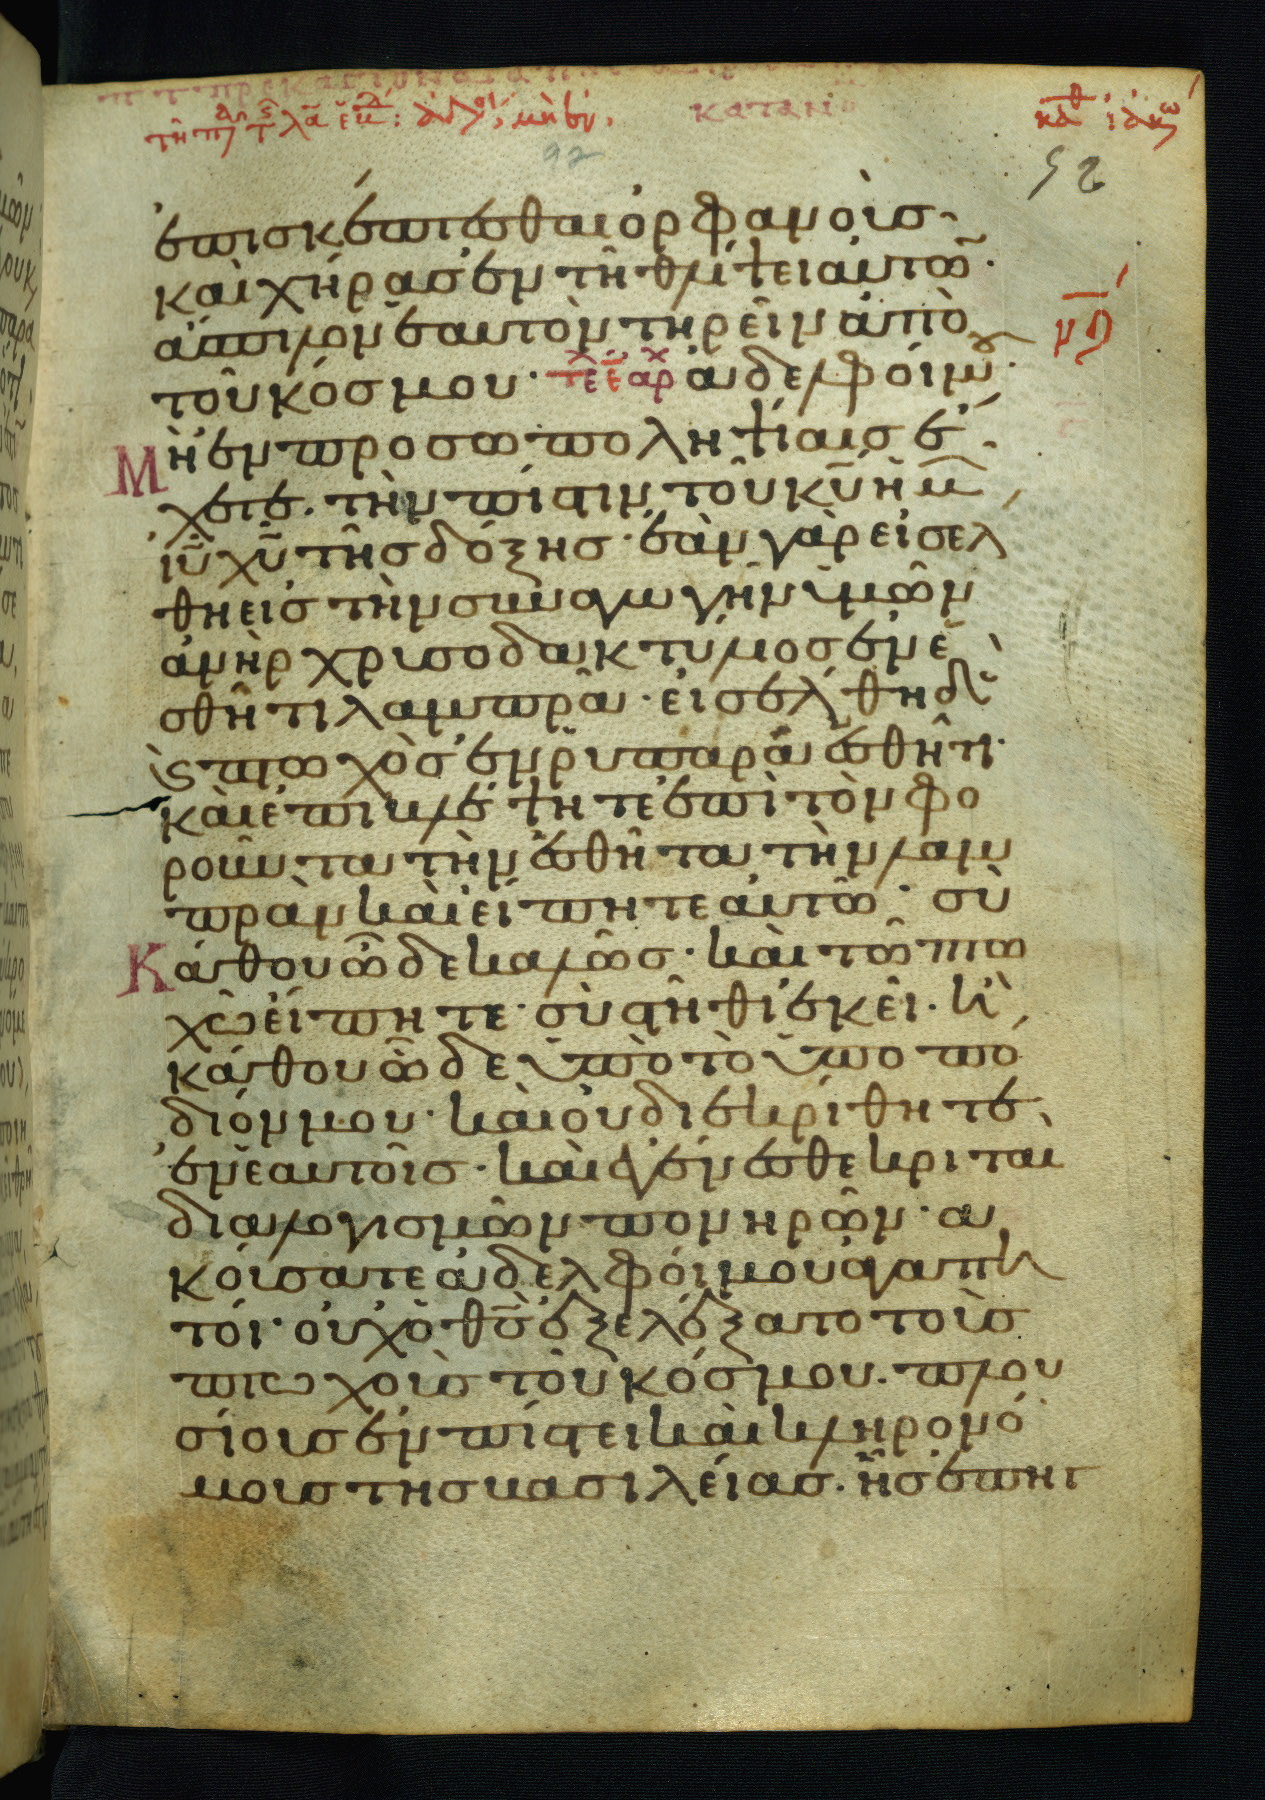 κατανι
92
ἐπισκέπτεσθαι ὀρφανοὺσ·
καὶ χήρασ ἐν τῆ θλίψει αὐτῶ̅·
ἄσπιλον ἑαυτὸν τηρεῖν ἀπὸ
τοῦ κόσμου· τε̅ ε̅ αρχ ἀδελφοίμου·
Μὴ ἐν προσωποληψίαισ ἔ
χετε. τὴν πίστιν τοῦ κ̅υ̅ ἡμ̅
ι̅υ̅ χ̅υ̅ τῆσ δόξησ· ἐὰν γὰρ εἰσελ
θη εἰσ τὴν συναγωγὴν ὑμῶν
ἀνὴρ χρυσοδακτύλιοσ ἐν ἐ
σθῆτι λαμπρᾶ· εἰσέλθη δὲ
ϗ πτωχὸσ ἐν ῥυπαρᾶ ἐσθῆτι·
καὶ ἐπιβλέψητε ἐπὶ τὸν φο
ροῦντα τὴν ἐσθῆτα τὴν λαμ
πρὰν καὶ εἴπητε αὐτῶ· σὺ
Κάθου ὧδε καλῶσ· καὶ τῶ πτω
χῶ εἴπητε· σὺ στῆθι ἐκεῖ· κὶ
κάθου ὧδε ὑπὸ τὸ ὑποπό
διόν μου· καὶ οὐ διεκρίθητε
ἐν ἑαυτοῖσ· καὶ ἐγένεσθε κριταὶ
διαλογισμῶν πονηρῶν· ἀ
κούσατε ἀδελφοί μου ἀγαπη
τοί· οὐχ ὁ θ̅σ̅ ἐξελέξατο τοὺσ
πτωχοὺσ τοῦ κόσμου. πλου
σίουσ ἐν πίστει καὶ κληρονό
μουσ τησ βασιλείασ. ἧσ ἐπηγ